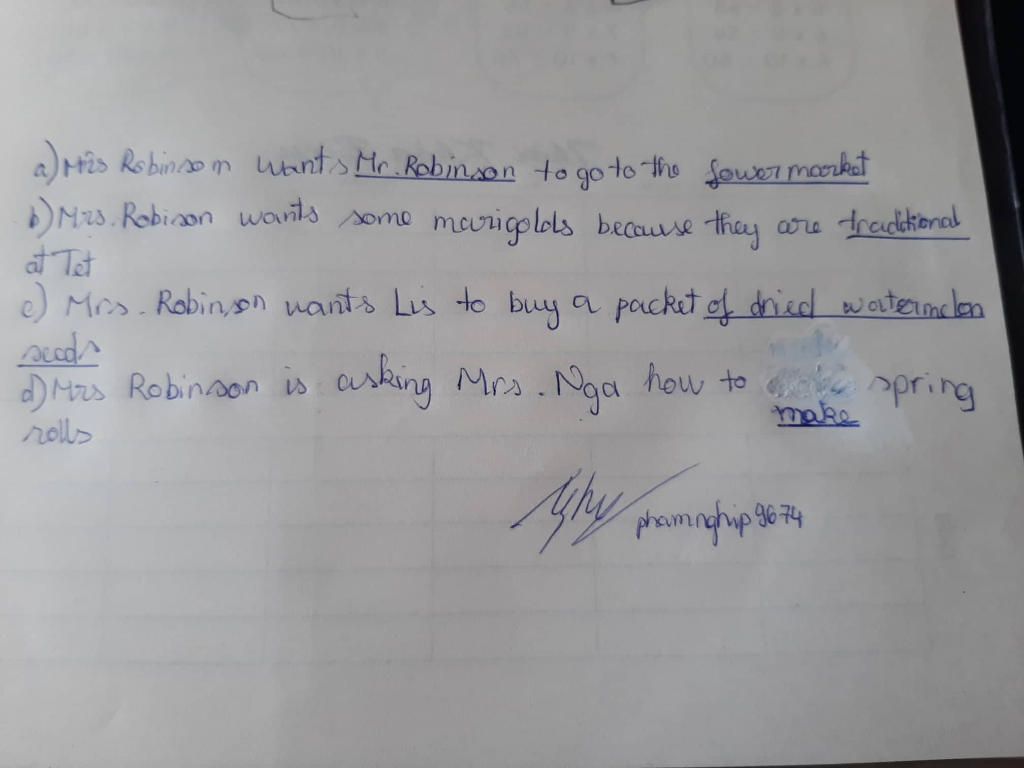 a) Mrs Robinson wants Mr. Robinson to go to the fower market
b) Mrs. Robison wants some marigolds because they are traditional
at Tet
c) Mrs. Robinson wants Lis to buy a packet of dried watermelon
seeds
d) Mrs Robinson is asking Mrs. Nga how to make spring
rolls
phamnghip9674